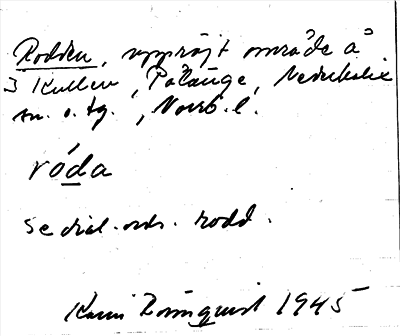 Rodden, uppröjt område å
Kullen, Pålänge, Nederkalix
sn. o. tg., Norrb. l.
róda
se dial. ordo. rodd.
Karin Rönnquist 1945